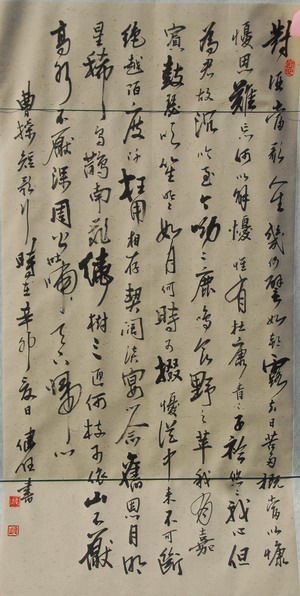 對酒當歌人生幾何譬如朝露去日苦多概當以慷
懮思難忘何以解懮惟有杜康青々子衿悠々我心但
為君故沉吟至今呦々鹿鳴食野之苹我有嘉
賓鼓瑟吹笙明々如月何時可掇懮從中來不可斷
絕越陌度阡枉用相存契闊談宴心念舊恩月明
星稀烏鵲南飛繞樹三匝何枝可依山不厭
高水不厭深周公吐哺天下歸心
曹操短歌行時在辛卯夏日健任書